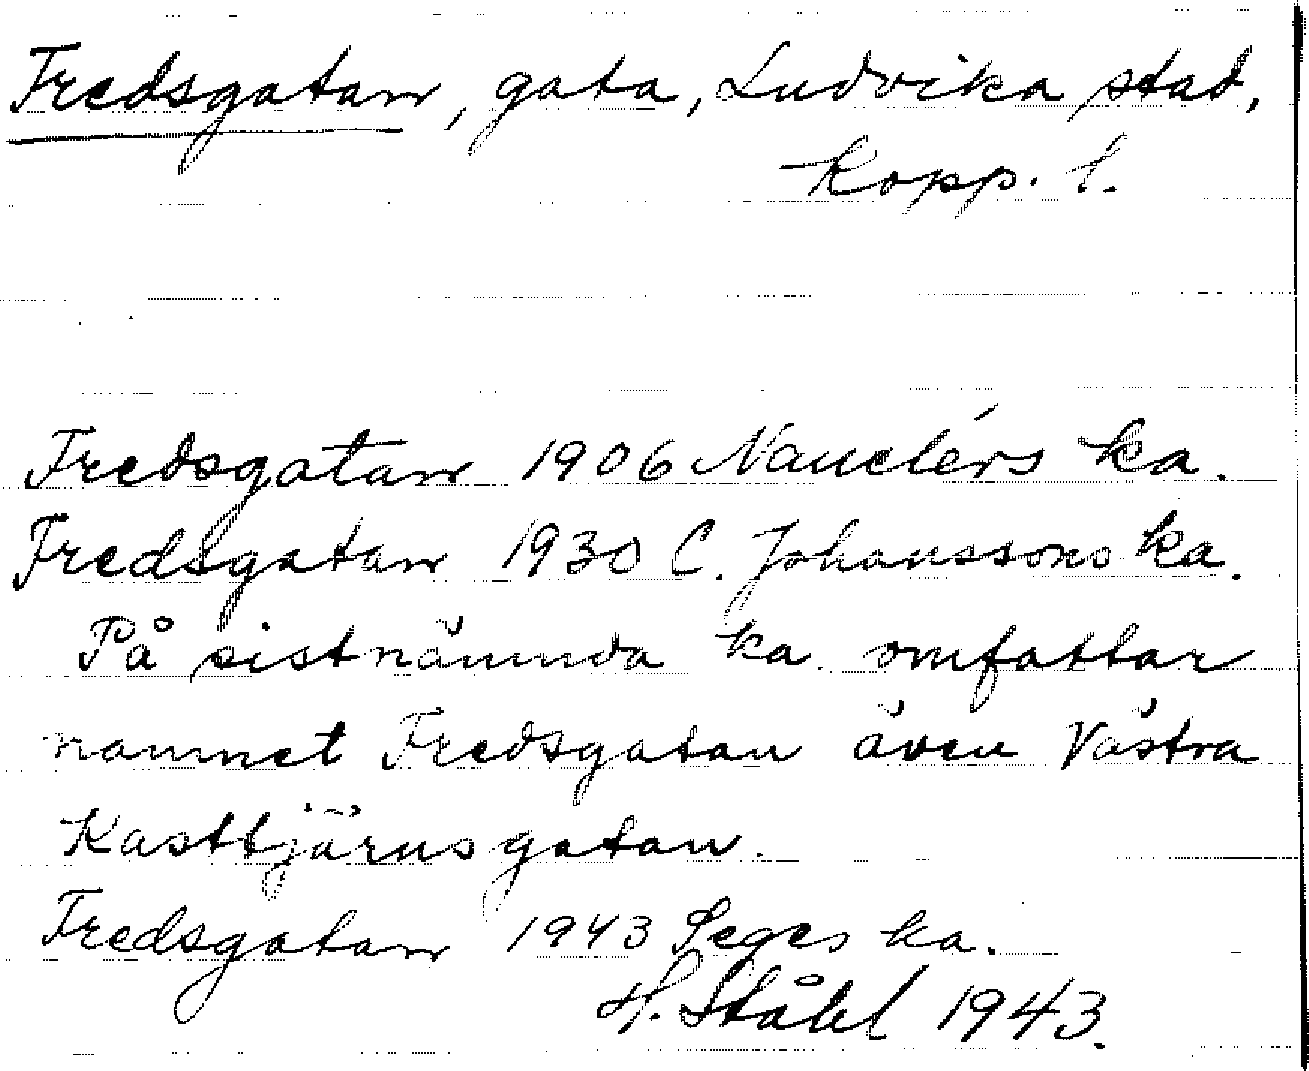 Fredsgatan, gata, Ludvika stad,
Kopp. l.
Fredsgatan 1906 Nauclérs ka.
Fredsgatan 1930 C. Johanssons ka.
På sistnämnda ka. omfattar
namnet Fredsgatan även Västra
Kasttjärnsgatan.
Fredsgatan 1943 Seges ka.
H. Ståhl 1943.